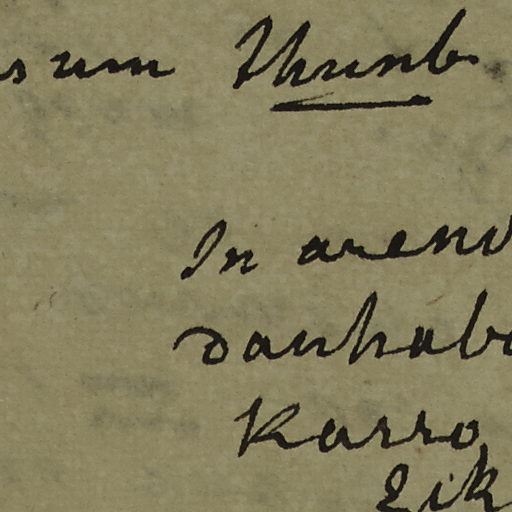 sum Thunb.
In areno
Danhabo
Karro
Zik